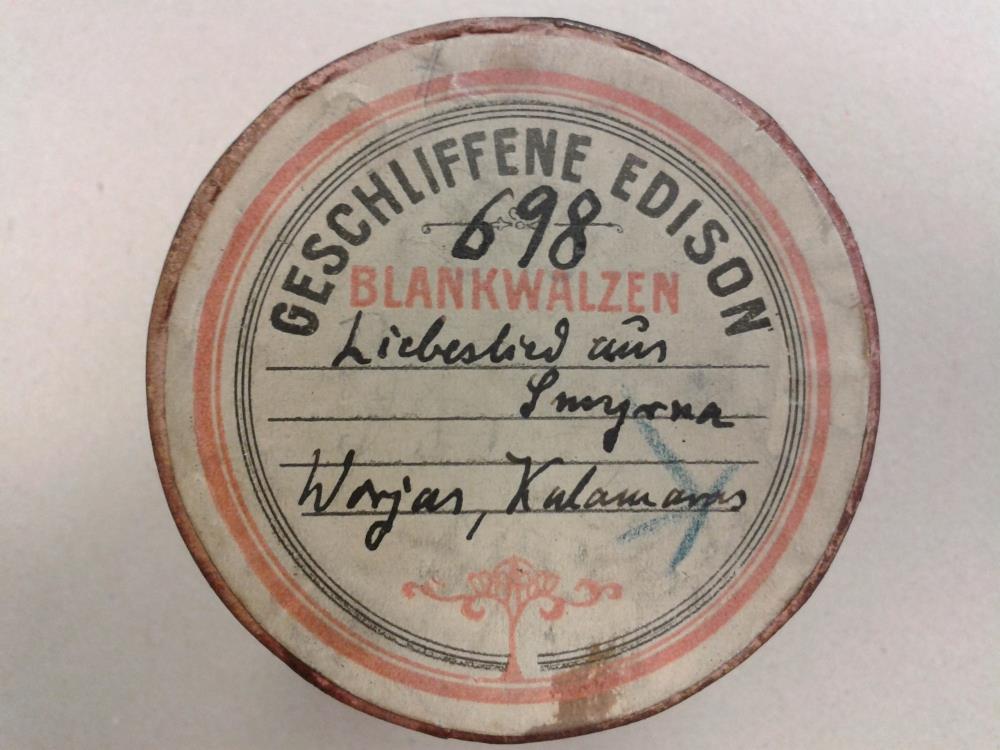 GESCHLIFFENE EDISON
698
BLANKWALZEN
Liebeslied aus
Smyrna
Worjas, Kalamaras